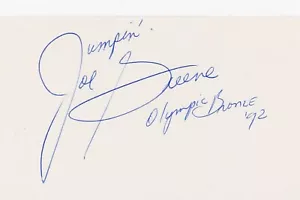 Jumpin'
Joe Greene
Olympic Bronze
'92